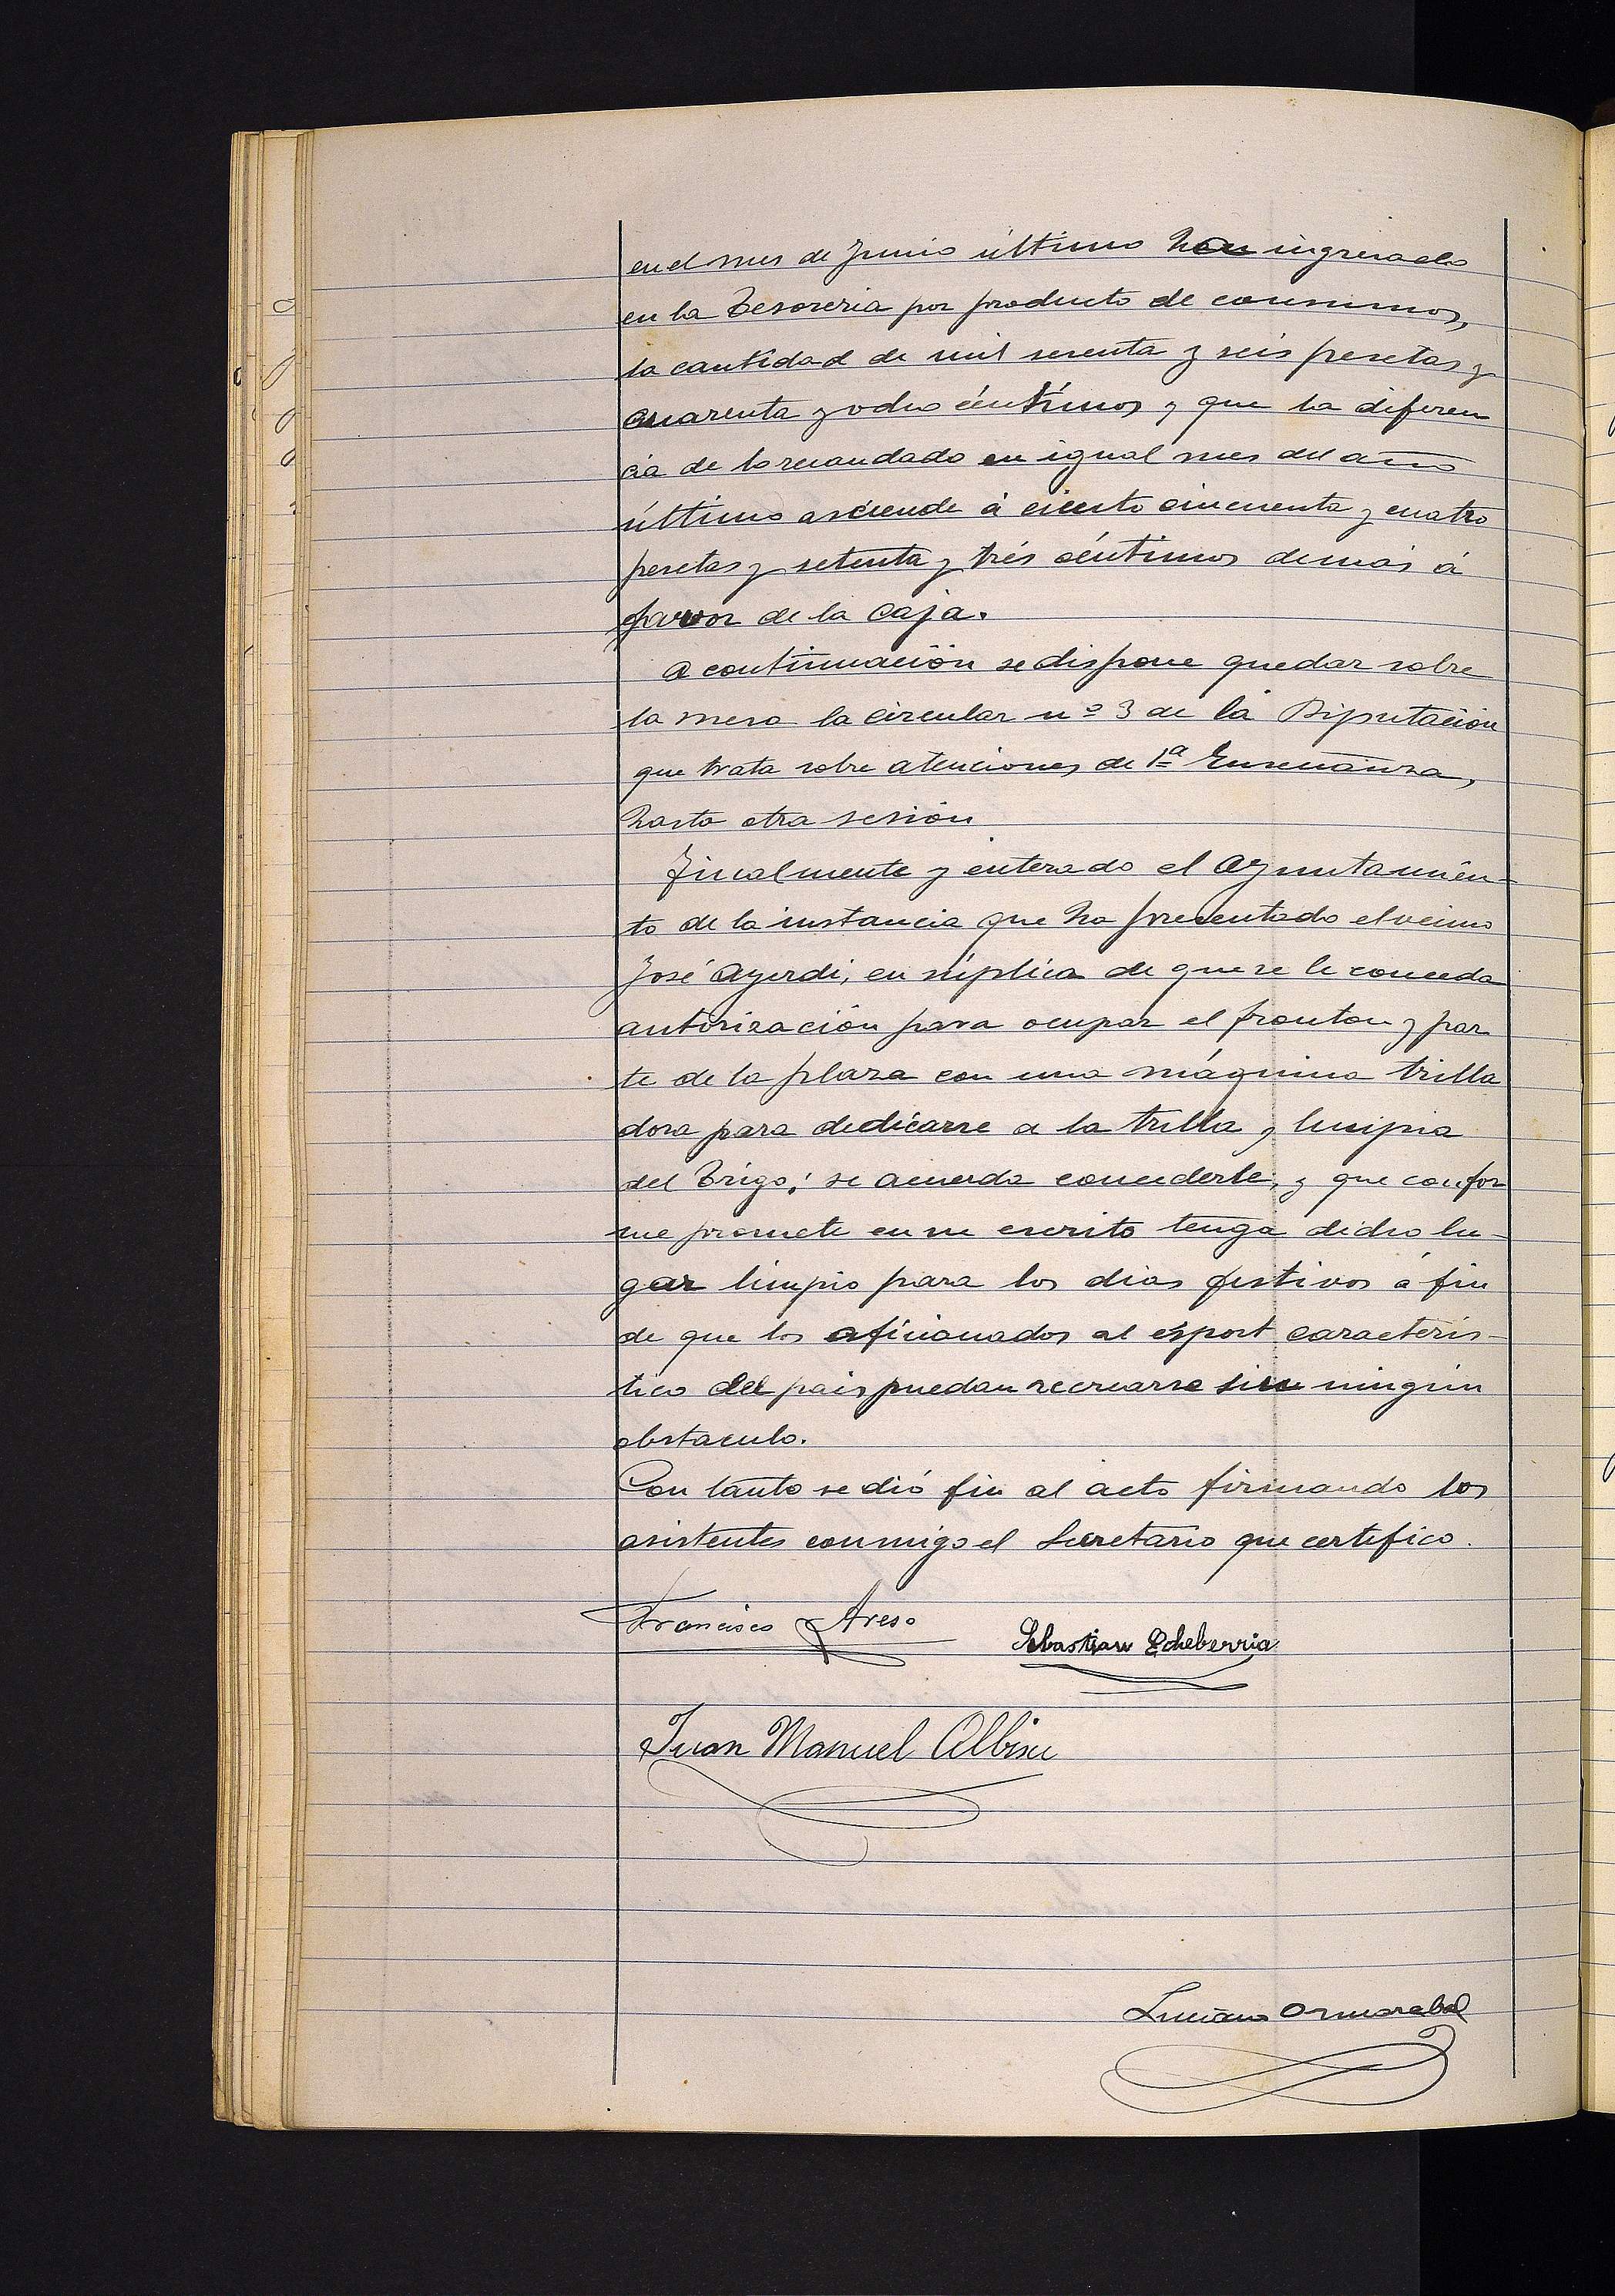 en el mes de Junio último han ingresado
en la Tesoreria por producto de consumos,
la cantidad de mil sesenta y seis pesetas y
cuarenta y ocho céntimos y que la diferen
cia de lo recaudado en igual mes del año
último asciende á ciento cincuenta y cuatro
pesetas y setenta y trés céntimos demás á
favor de la Caja.
A continuación se dispone quedar sobre
la mesa la circular nº 3 de la Diputación
que trata sobre atenciones de 1ª Enseñanza,
hasta otra sesión
Finalmente y enterado el Ayuntamien-
to de la instancia que ha presentado el vecino
José Ayerdi, en súplica de que se le conceda
autorización para ocupar el fronton y par
te de la plaza con una máquina trilla
dora para dedicarse a la trilla y limpia
del Trigo; se acuerda concederle, y que confor
me promete en su escrito tenga dicho lu-
gar limpio para los dias festivos á fin
de que los aficionados al esport caracterís-
tico del pais puedan recrearse sin ningún
obstaculo.
Con tanto se dió fin al acto firmando los
asistentes conmigo el Secretario que certifico.
Francisco Areso
Sebastian Echeberria
Juan Manuel Albisu
Luciano Ormazabal